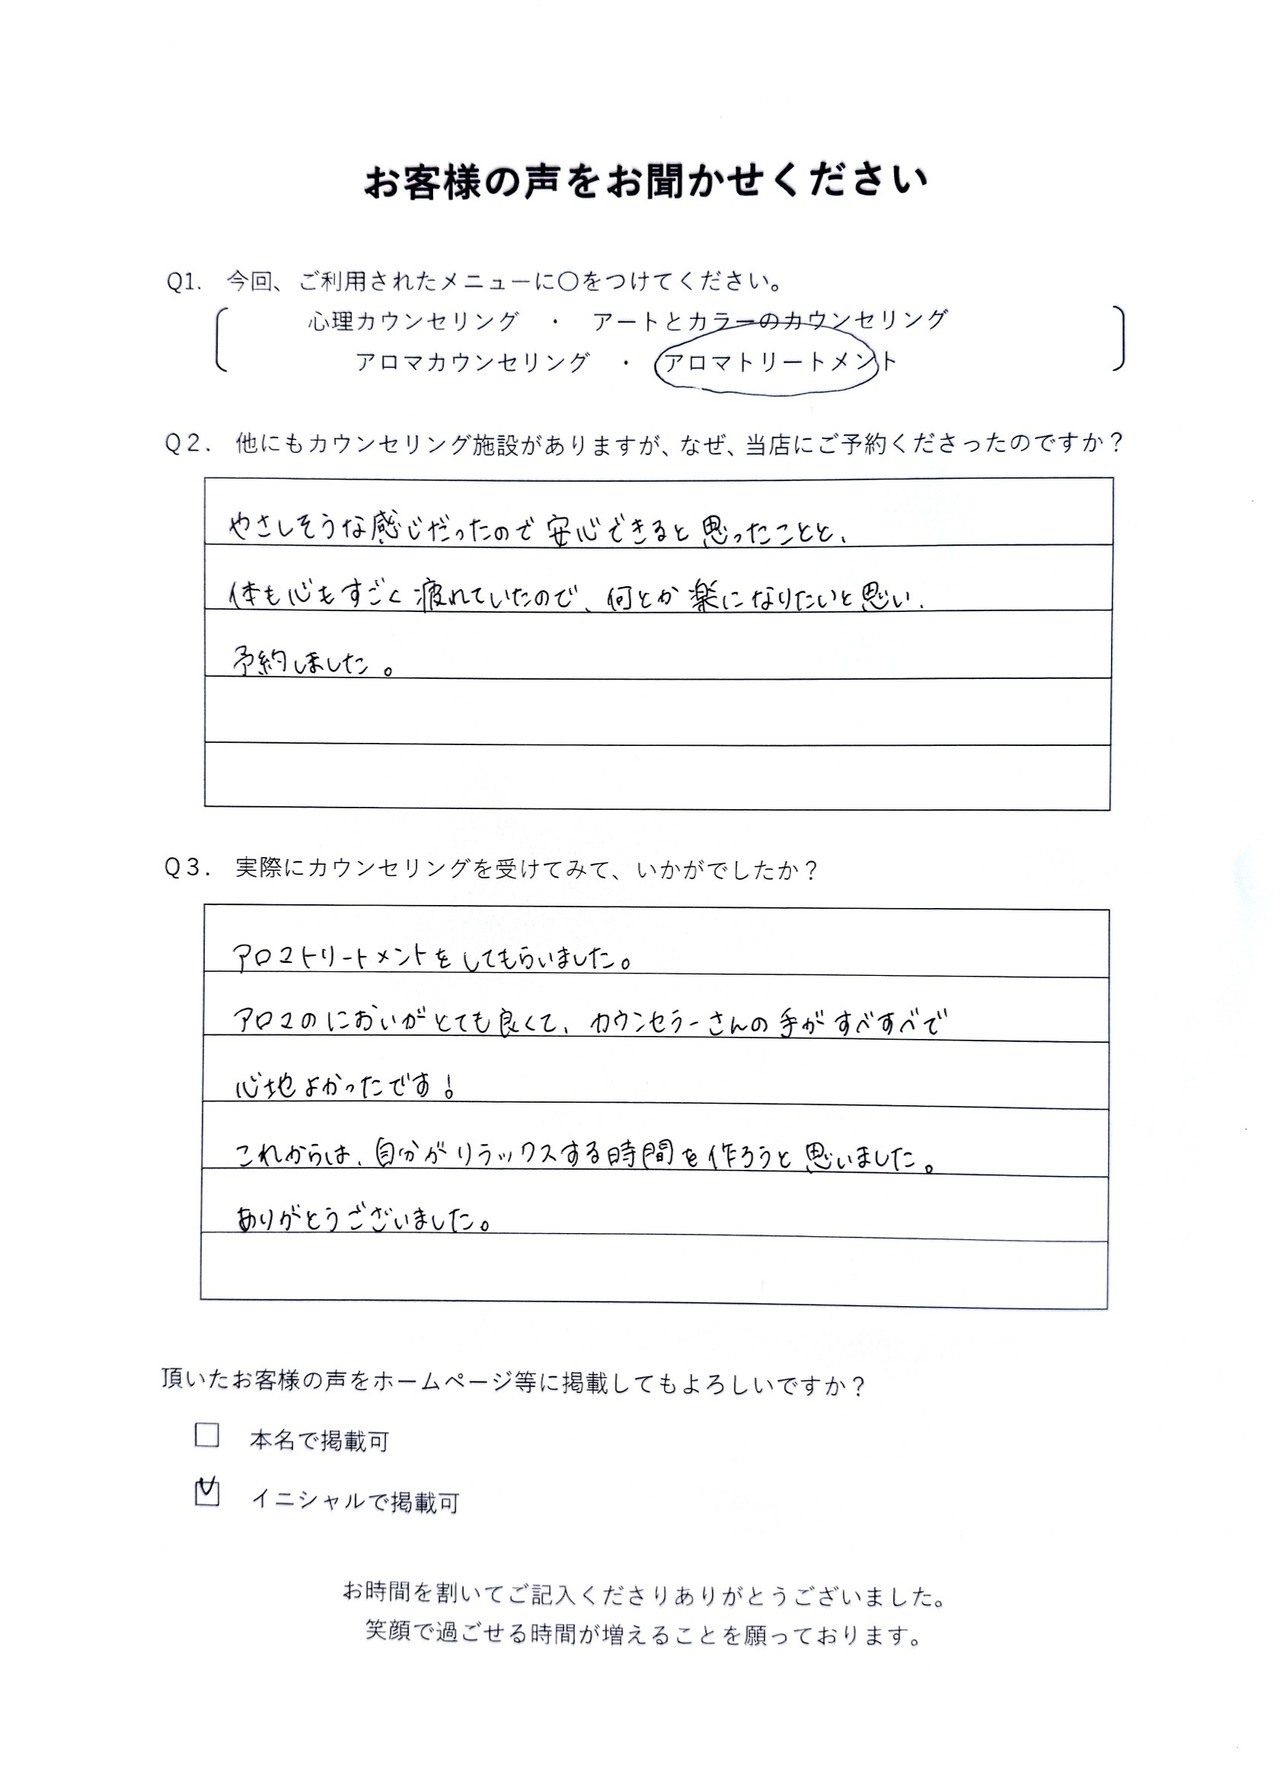 お客様の声をお聞かせください
Q1. 今回、ご利用されたメニューに〇をつけてください。
心理カウンセリング ・ アートとカラーのカウンセリング
アロマカウンセリング ・ アロマトリートメント
Q2. 他にもカウンセリング施設がありますが、なぜ、当店にご予約くださったのですか？
やさしそうな感じだったので安心できると思ったことと、
体も心もすごく疲れていたので、何とか楽になりたいと思い、
予約しました。
Q3. 実際にカウンセリングを受けてみて、いかがでしたか？
アロマトリートメントをしてもらいました。
アロマのにおいがとても良くて、カウンセラーさんの手がすべすべで
心地よかったです！
これからは、自分がリラックスする時間を作ろうと思いました。
ありがとうございました。
頂いたお客様の声をホームページ等に掲載してもよろしいですか？
☐ 本名で掲載可
☑ イニシャルで掲載可
お時間を割いてご記入くださりありがとうございました。
笑顔で過ごせる時間が増えることを願っております。